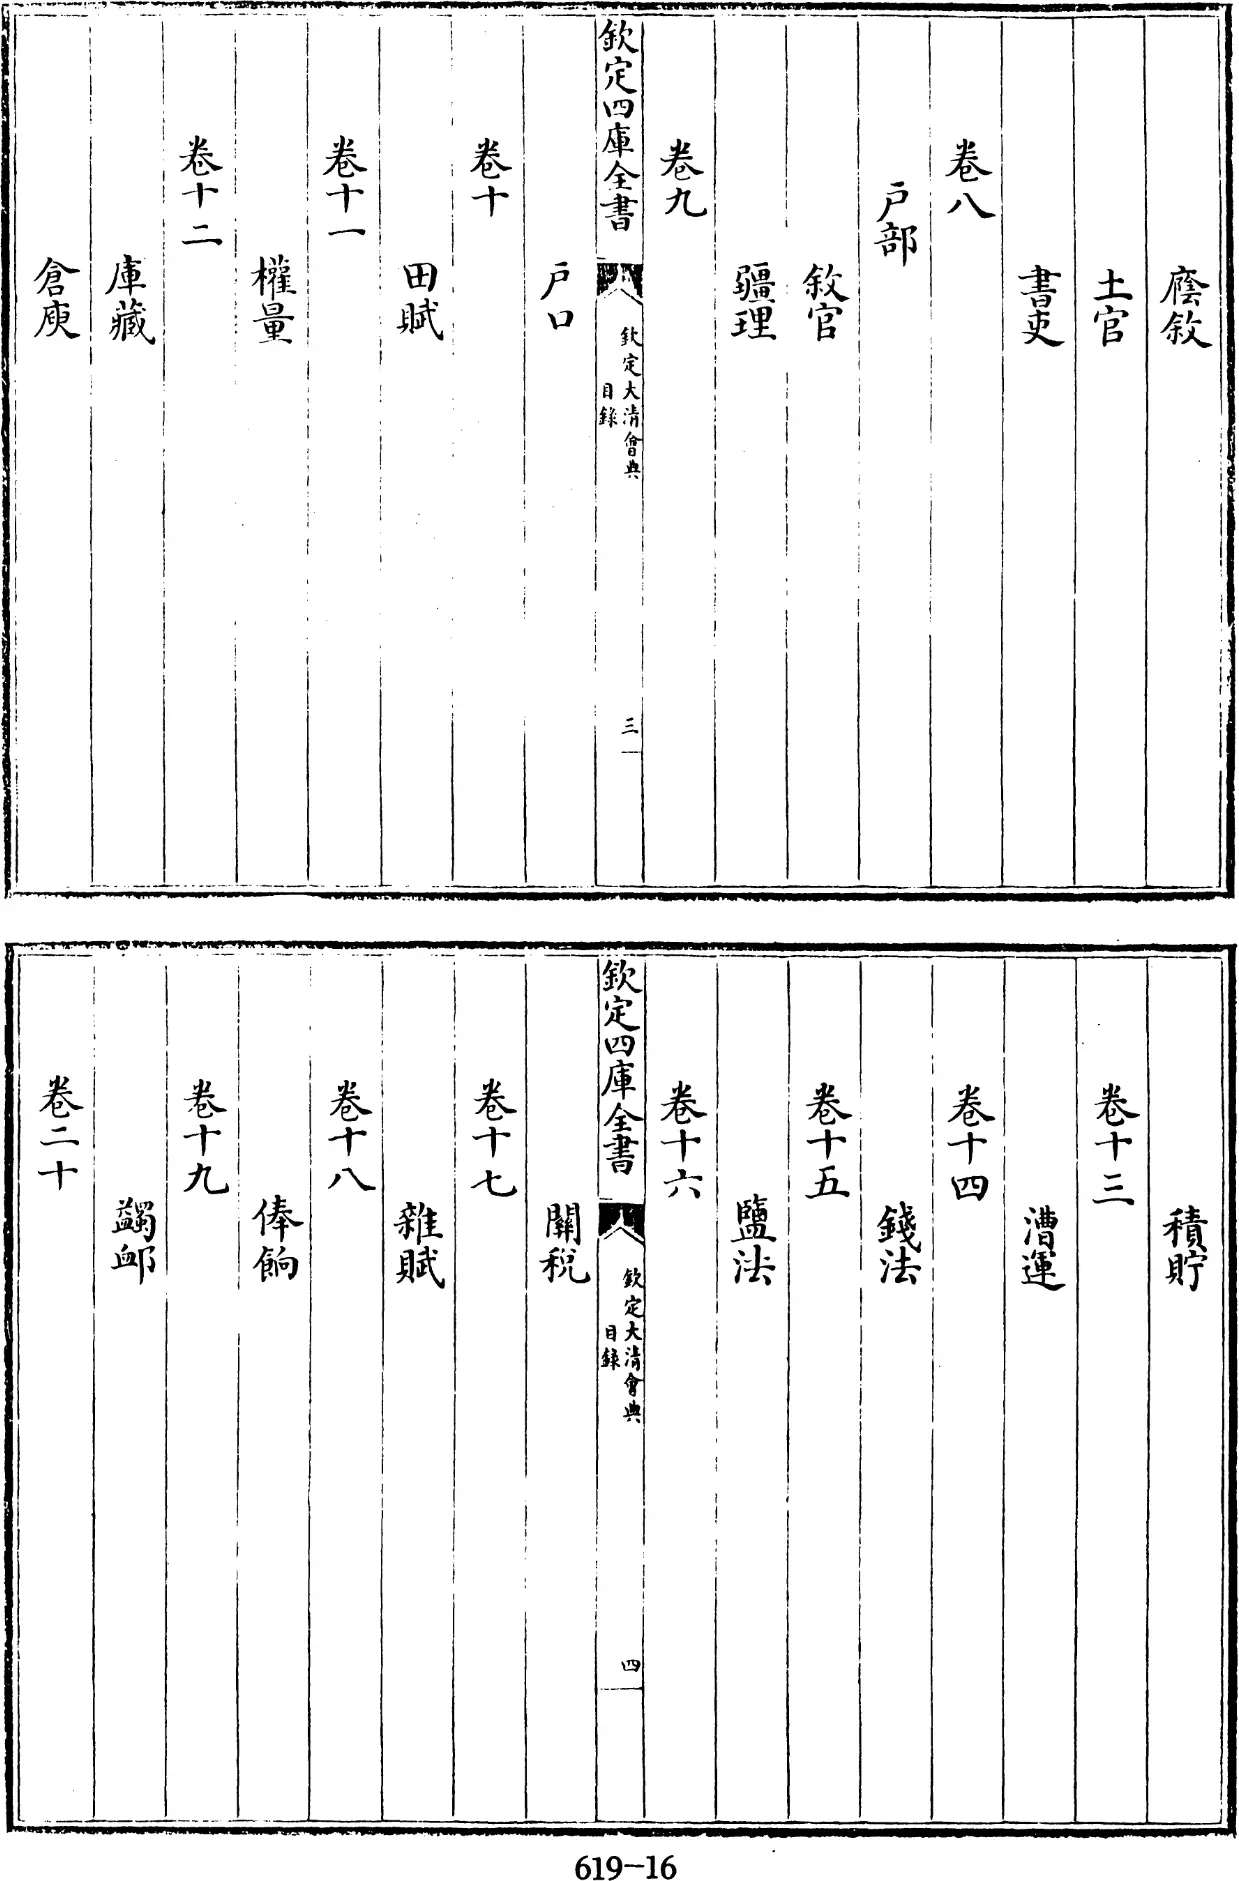 廕敘
土官
書吏
卷八
戸部
敘官
疆理
卷九
欽定四庫全書
欽定大清會典
目錄
三
戸口
卷十
田賦
卷十一
權量
卷十二
庫藏
倉庾
積貯
卷十三
漕運
卷十四
錢法
卷十五
鹽法
卷十六
欽定四庫全書
欽定大清會典
目錄
四
關稅
卷十七
雜賦
卷十八
俸餉
卷十九
蠲卹
卷二十
619-16